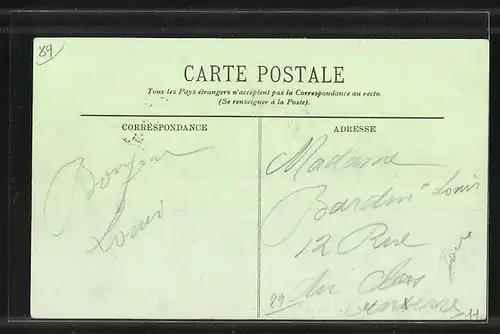 89
CARTE POSTALE
Tous les Pays étrangers n'acceptent pas la Correspondance au recto.
(Se renseigner à la Poste).
CORRESPONDANCE
ADRESSE
Bonjour
Louis
Madame
Bardin Louis
12 Rue
du Clos
Auxerre
89
11